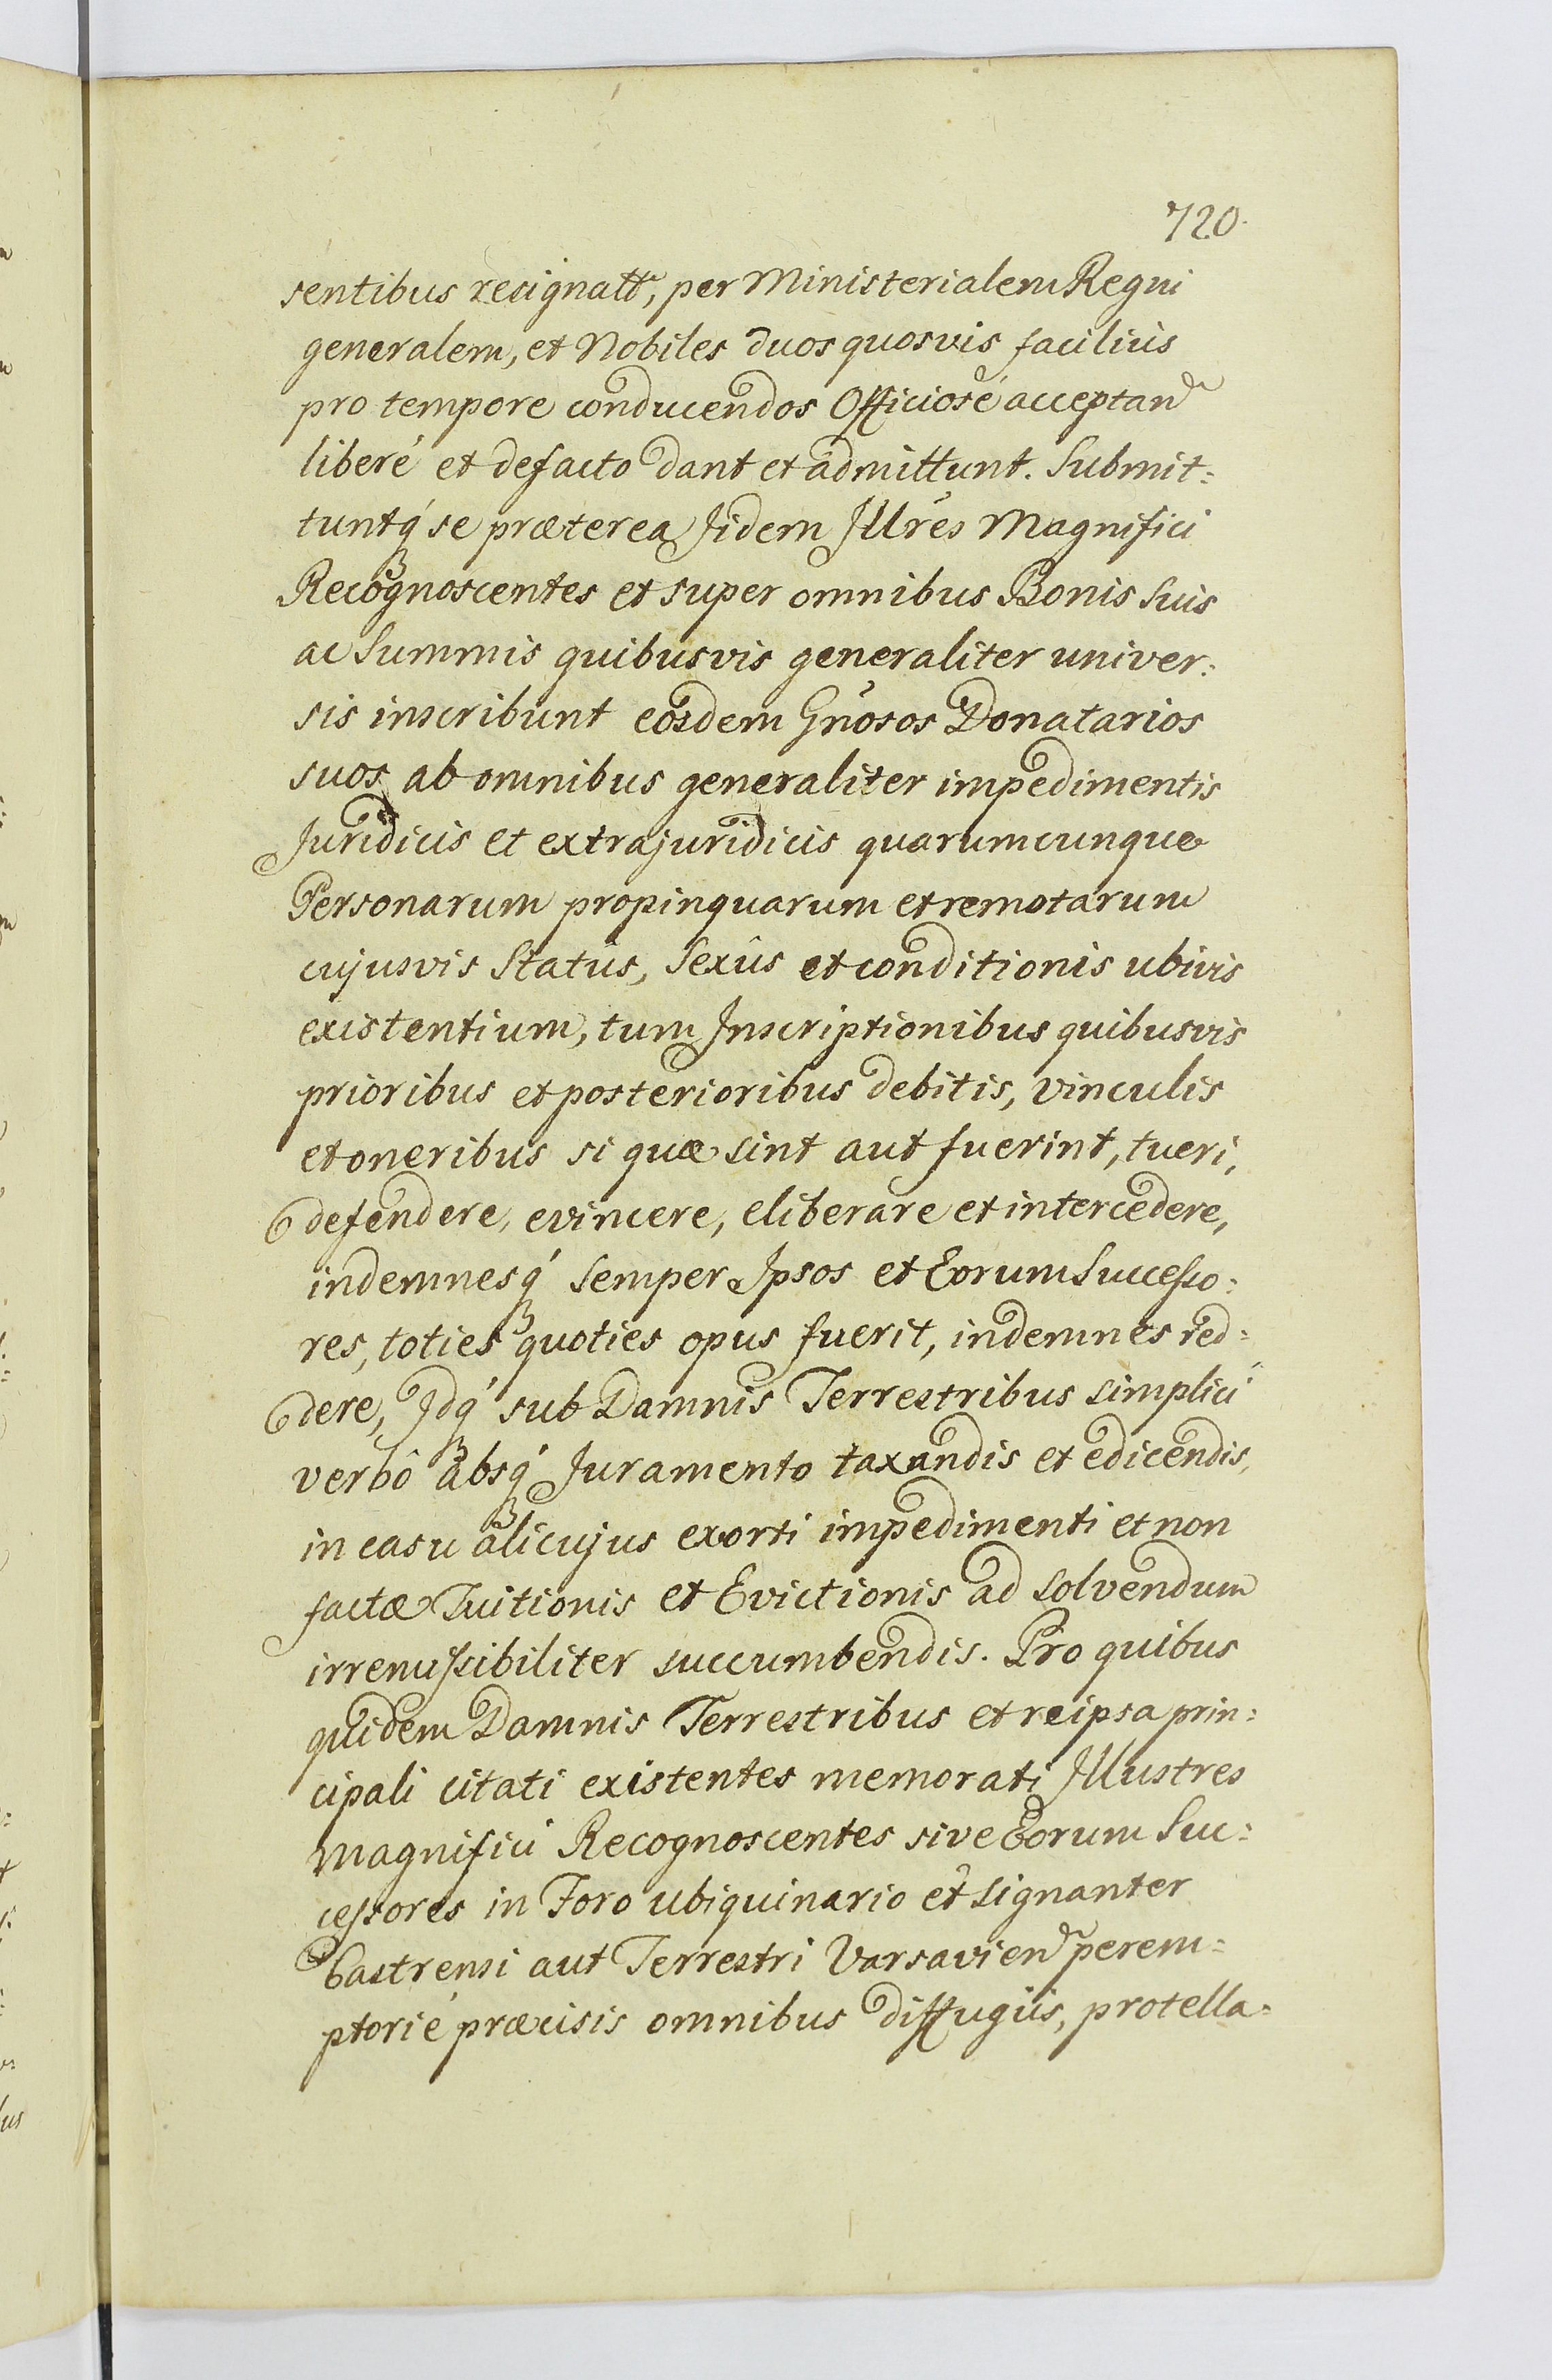 720.
sentibus resignatt, per Ministerialem Regni
generalem, et Nobiles duos quosvis facilius
pro tempore conducendos Officiosé acceptand
liberé et defacto dant et admittunt. Submit:
tuntq́ se præterea Jidem Jllres Magnifici
Recognoscentes et super omnibus Bonis suis
ac Summis quibusvis generaliter univer:
sis inscribunt eosdem Gnosos Donatarios
suos ab omnibus generaliter impedimentis
Juridicis et extrajuridicis quarumcunque
Personarum propinquarum et remotarum
cujusvis Statûs, Sexûs et conditionis ubivis
existentium, tum Jnscriptionibus quibusvis
prioribus et posterioribus debitis, vinculis
et oneribus si quæ sint aut fuerint, tueri,
defendere, evincere, eliberare et intercedere,
indemnesq́ semper Jpsos et Eorum Successo:
res, toties quoties opus fuerit, indemnes red:
dere, Jdq́ sub Damnis Terrestribus simplici
verbô absq́ Juramento taxandis et edicendis,
in casu alicujus exorti impedimenti et non
factæ Tuitionis et Evictionis ad solvendum
irremissibiliter succumbendis. Pro quibus
quidem Damnis Terrestribus et reipsa prin:
cipali citati existentes memorati Jllustres
Magnifici Recognoscentes sive Eorum Suc:
cessores in Foro ubiquinario et signanter
Castrensi aut Terrestri Varsaviend perem:
ptorié præcisis omnibus diffugiis, protella: